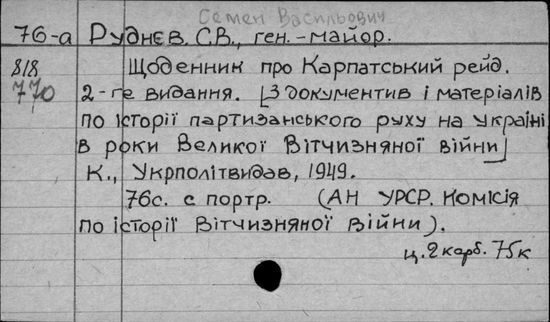 Семен Васильович
76-а Руднєв. С.В., ген.-майор.
818 Щоденник про Карпатський рейд.
770 2-ге видання. [З документив і матеріалів
по історії партизанського руху на Україні
в роки Великої Вітчизняної війни]
К., Укрполітвидав, 1949.
76с. с портр. (АН УРСР. Комісія
по історії Вітчизняної Війни).
ц. 2 карб. 75к